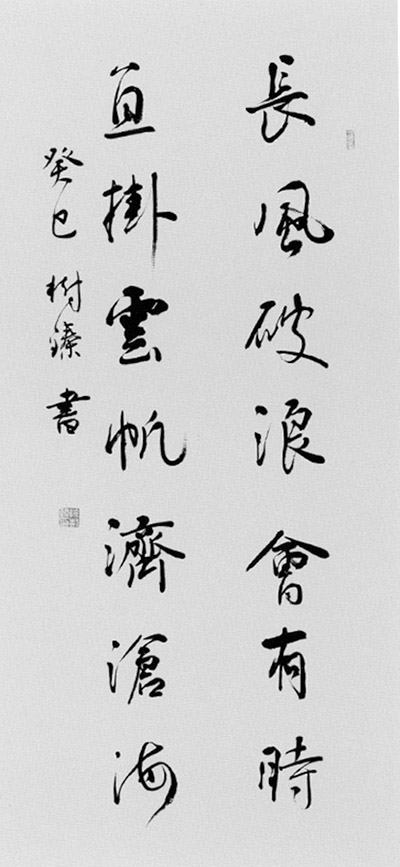 長風破浪會有時
直掛雲帆濟滄海
癸巳 樹臻 書